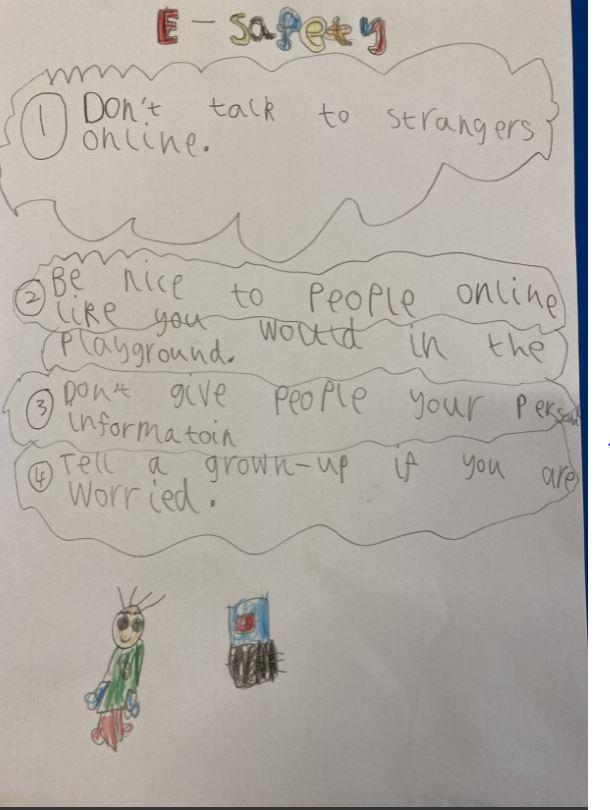 E-safety
1 Don't talk to strangers
online.
2 Be nice to people online
like you would in the
playground.
3 Don't give people your personal
informatoin
4 Tell a grown-up if you are
worried.